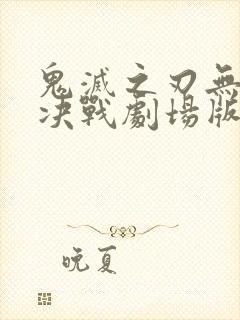 鬼滅之刃無
決戰劇場版
晚夏